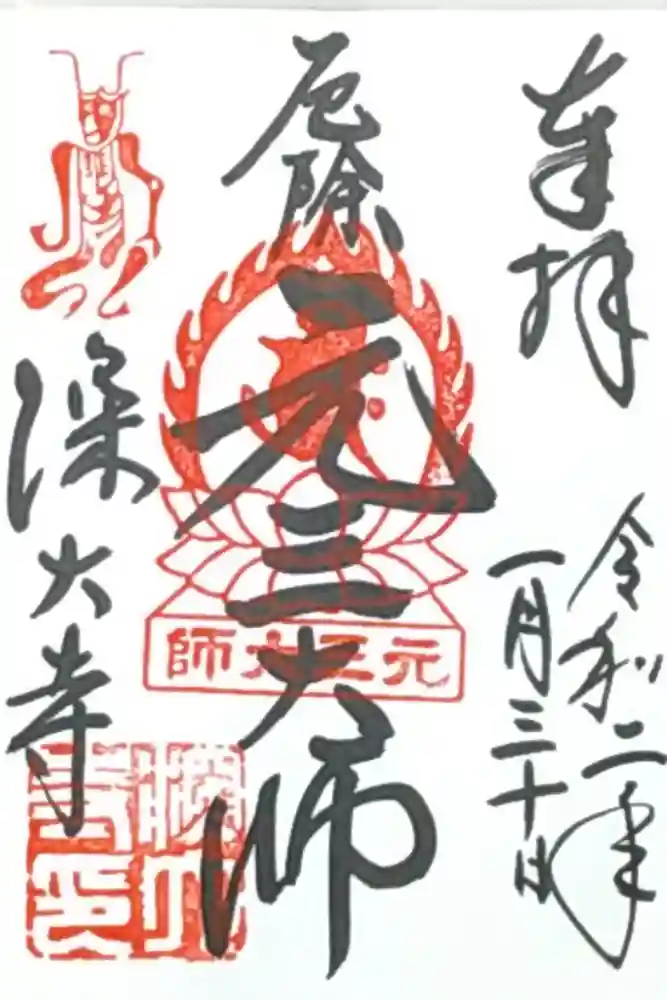 奉拝
令和二年
一月三十日
厄除
元三大師
師大三元
深大寺